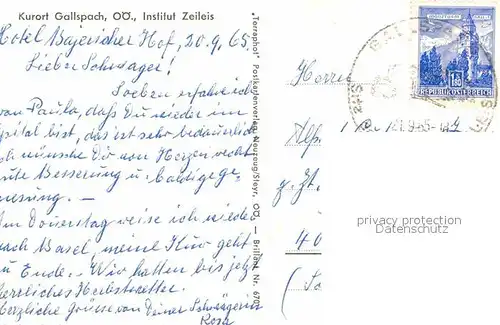 Kurort Gallspach, OÖ., Institut Zeileis
Hotel Bayerischer Hof, 20.9.65
Lieber Schwager!
Soeben erfahre ich
von Paula, daß Du wieder im
Spital bist, das ist sehr bedauerlich
ich wünsche Dir von Herzen recht
gute Besserung u. baldige ge-
nesung. –
Am Donerstag reise ich wieder
nach Basel, meine Kur geht
zu Ende. Wir hatten bis jetzt
herrliches Herbstwetter.
Herzliche Grüsse von Deiner Schwägerin
Rosa
"Terraphot" Postkartenverlag Neuzeug/Steyr, OÖ. — Brillant Nr. 670
REPUBLIK ÖSTERREICH
1.80
Herrn
z. Zt.
privacy protection
Datenschutz